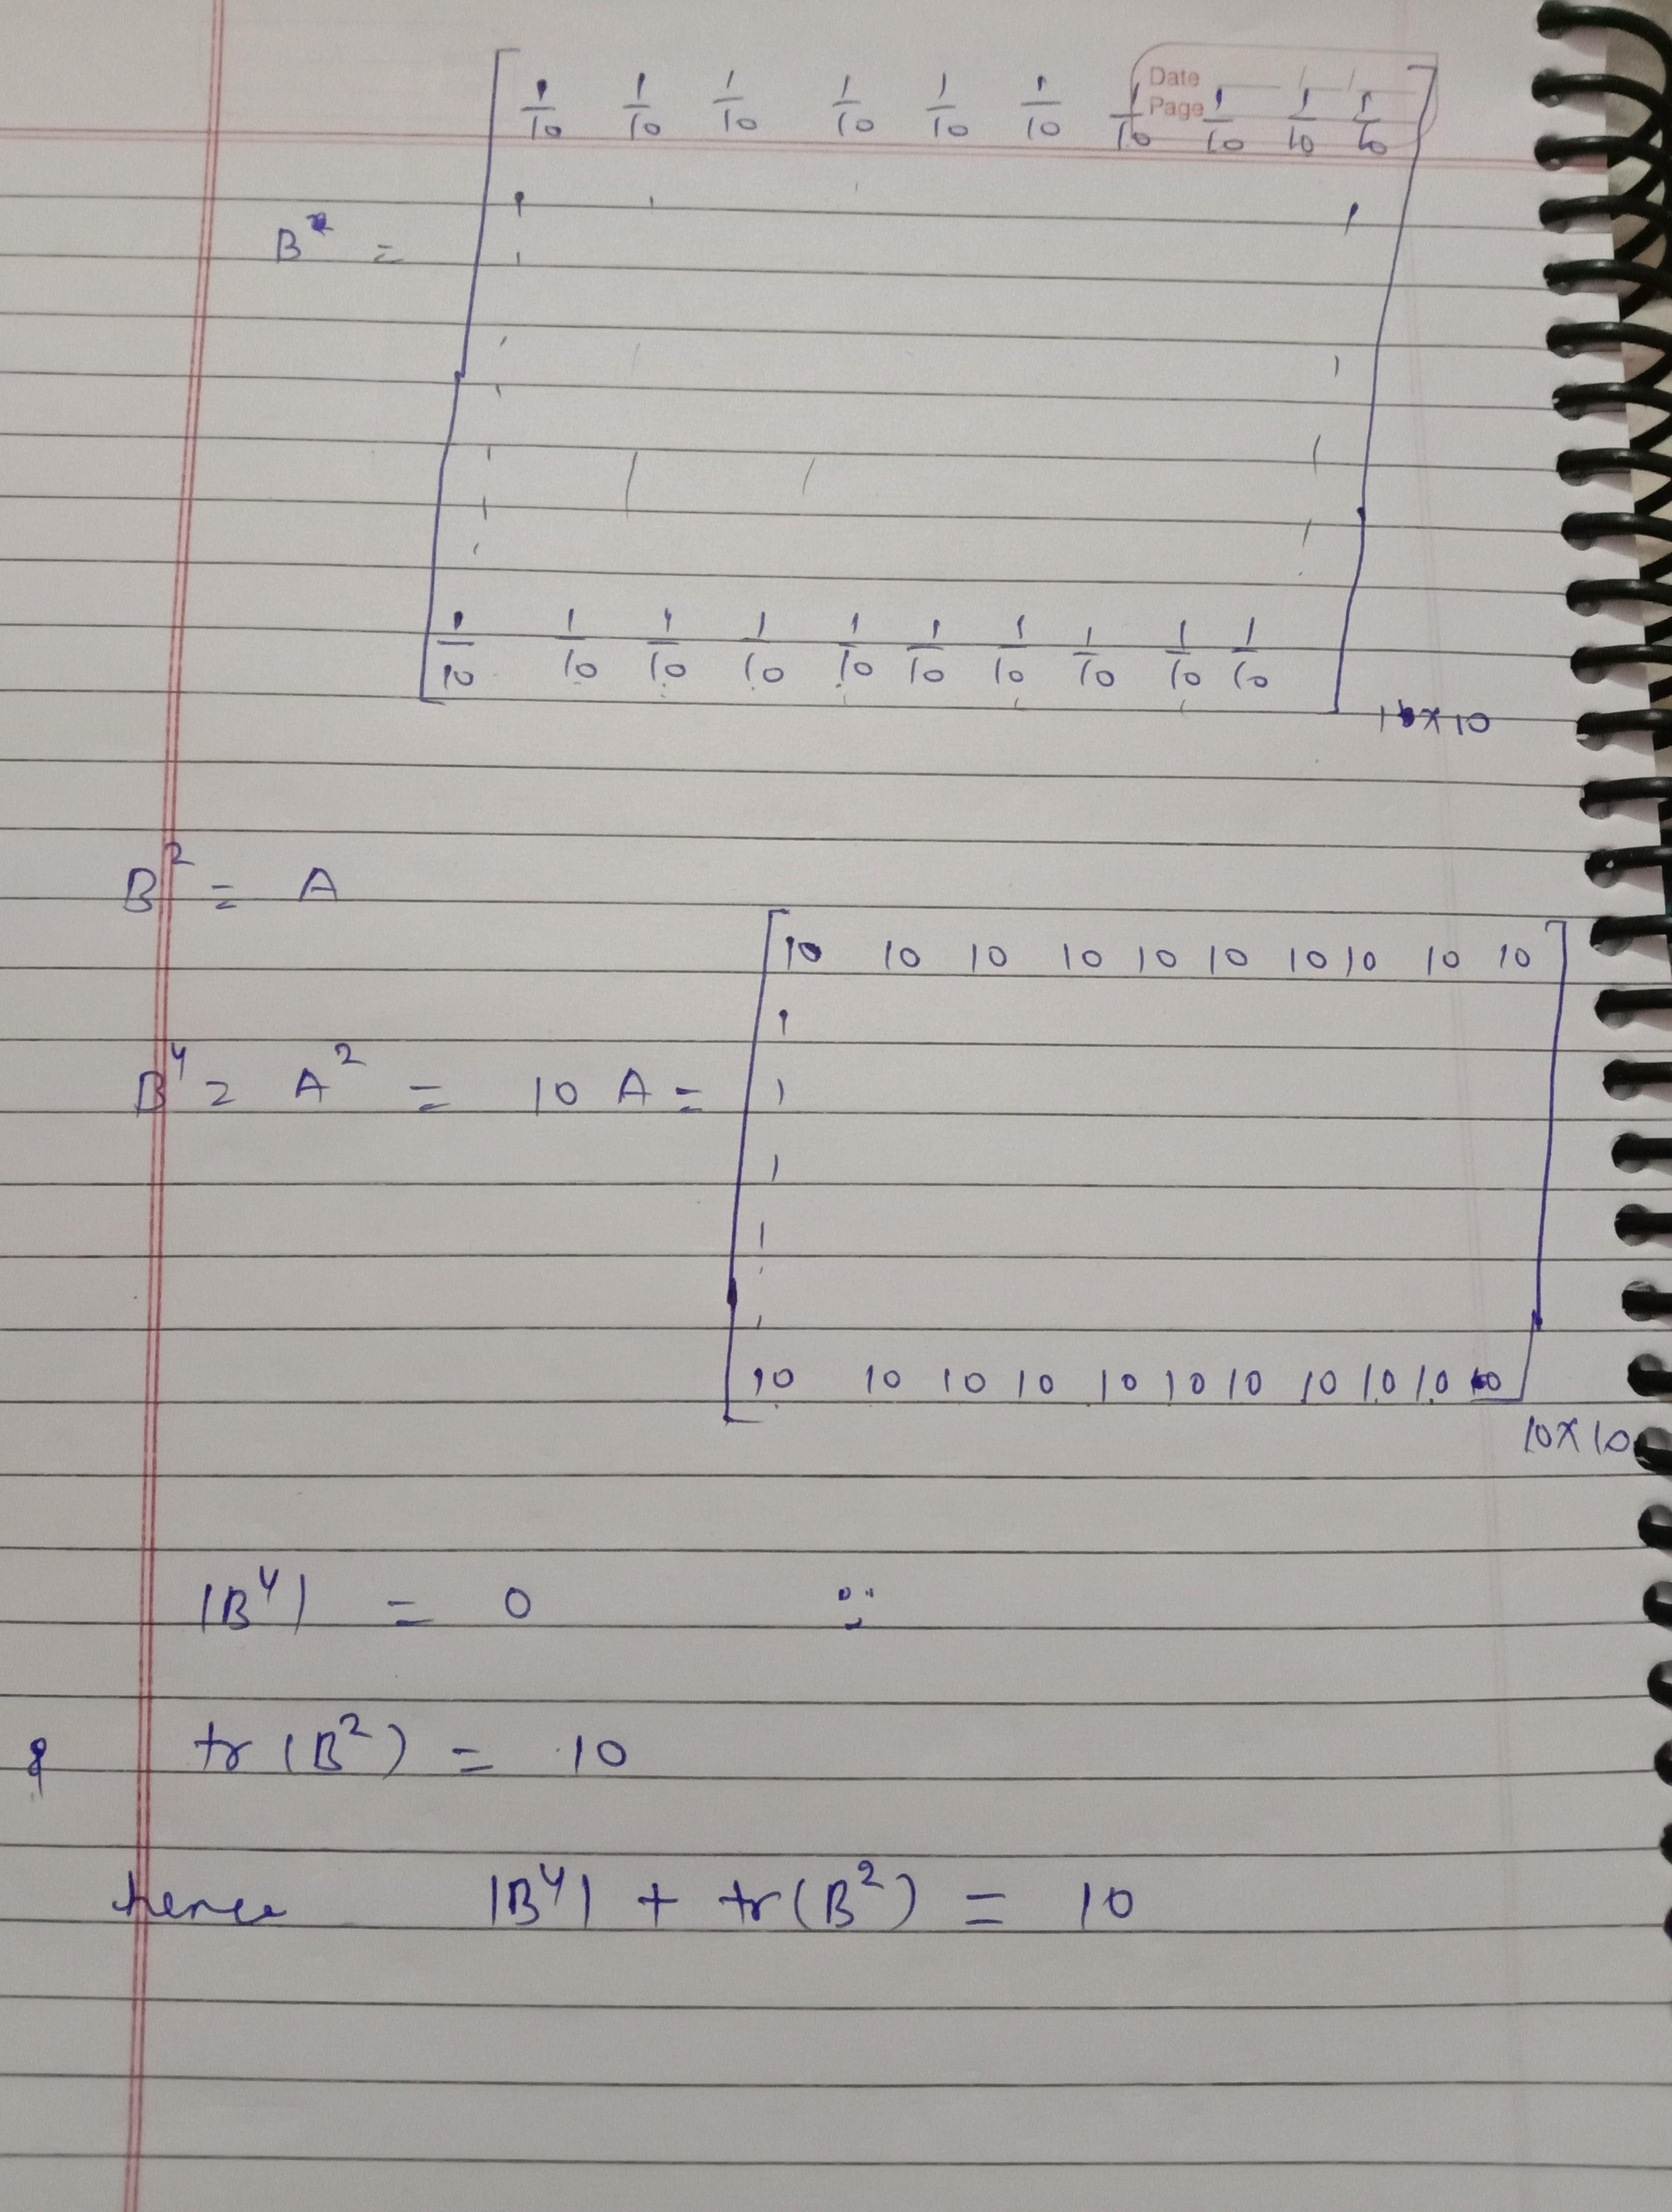 Date
Page
1/10 1/10 1/10 1/10 1/10 1/10 1/10 1/10 1/10 1/10
B =
1/10 1/10 1/10 1/10 1/10 1/10 1/10 1/10 1/10 1/10
10×10
B² = A
10 10 10 10 10 10 10 10 10 10
B⁴ = A² = 10 A =
10 10 10 10 10 10 10 10 10 10
10×10
|B⁴| = 0
& tr(B²) = 10
Hence |B⁴| + tr(B²) = 10